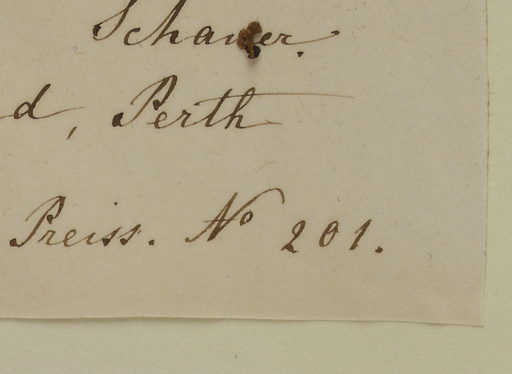 Schauer.
d, Perth
Preiss. No 201.